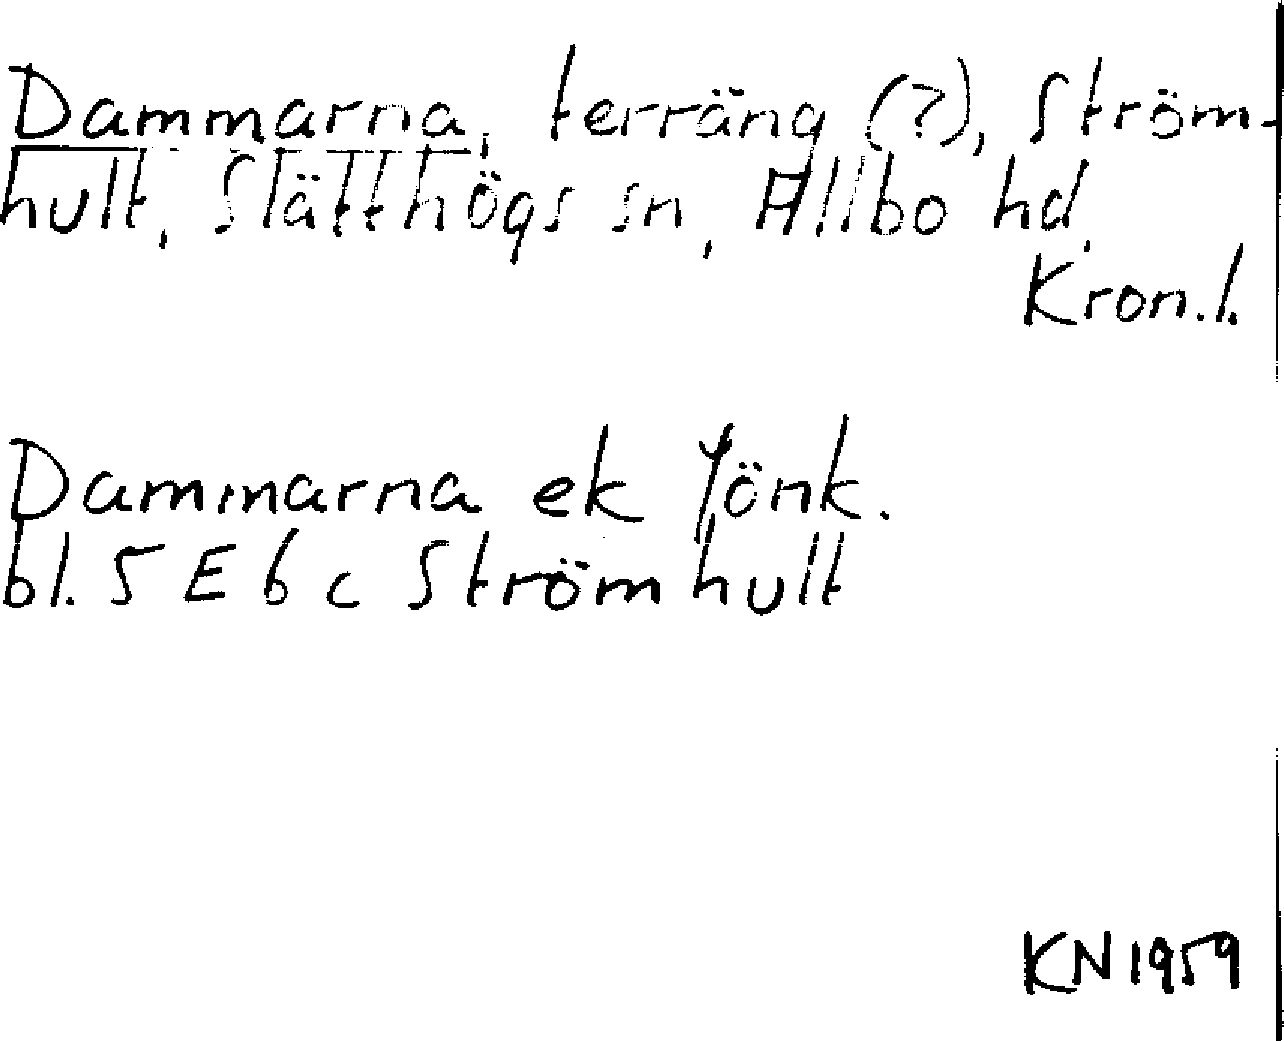 Dammarna, terräng (?), Ström-
hult, Slätthögs sn, Allbo hd,
Kron.l.
Dammarna ek Jönk.
bl. 5 E 6 c Strömhult
KN 1959